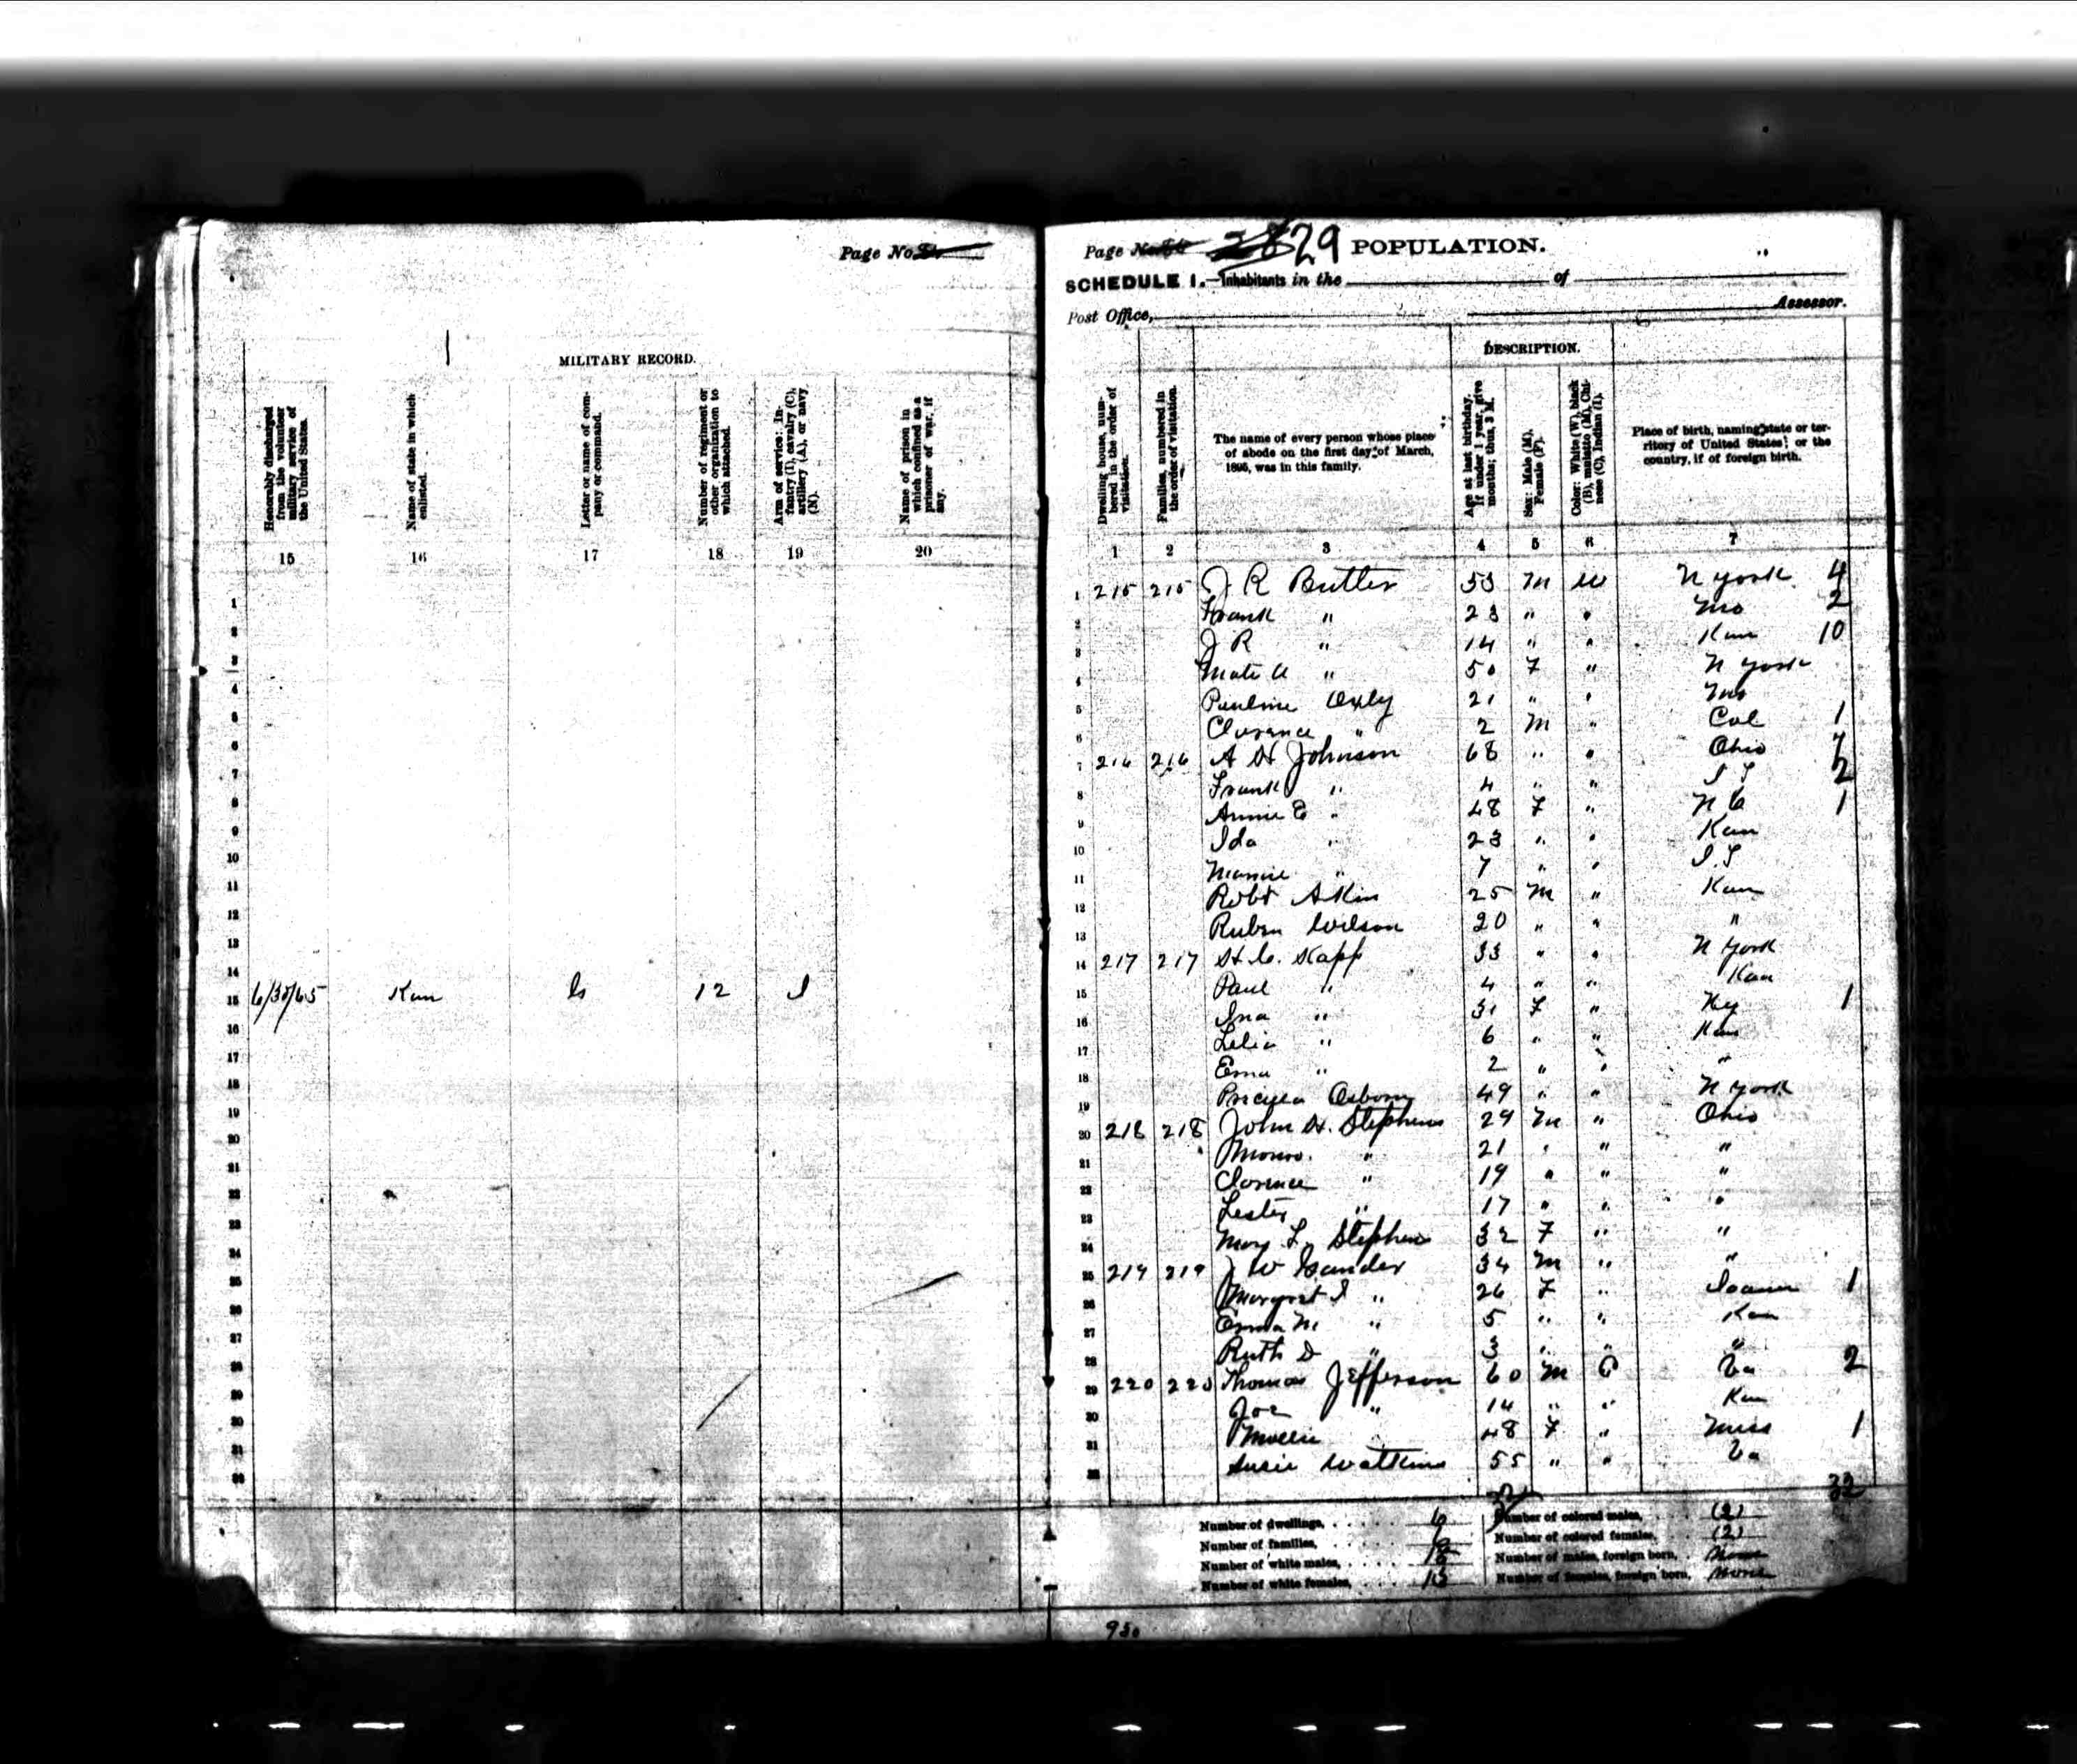 Page No.
MILITARY RECORD.
Honorably discharged from the volunteer military service of the United States.
Name of state in which enlisted.
Letter or name of company or command.
Number of regiment or other organization to which attached.
Arm of service: Infantry (I), cavalry (C), artillery (A), or navy (N).
Name of prison in which confined as a prisoner of war, if any.
15 16 17 18 19 20
1
2
3
4
5
6
7
8
9
10
11
12
13
14
15 6/30/65 Kan 12 I
16
17
18
19
20
21
22
23
24
25
26
27
28
29
30
31
Page No. 29 POPULATION.
SCHEDULE 1.—Inhabitants in the of
Post Office, Assessor.
DESCRIPTION.
Dwelling house, numbered in the order of visitation.
Families, numbered in the order of visitation.
The name of every person whose place
of abode on the first day of March,
1895, was in this family.
Age at last birthday. If under 1 year, give months; thus, 3 M.
Sex: Male (M), Female (F).
Color: White (W), black (B), mulatto (M), Chinese (C), Indian (I).
Place of birth, naming state or ter-
ritory of United States; or the
country, if of foreign birth.
1 2 3 4 5 6 7
1 215 215 J R Butler 53 M W N York 4
2 Frank " 23 " " Mo 2
3 J R " 14 " " Kan 10
4 " 50 F " N York
5 Pauline 21 " " Mo
6 Clarence " 2 M " Col 1
7 216 216 A H Johnson 68 " " Ohio 7
8 Frank " 4 " " I T 2
9 Annie E " 48 F " N C 1
10 Ida " 23 " " Kan
11 Mamie " 7 " " I.T
12 Robt Akin 25 M " Kan
13 Ruben Wilson 20 " " "
14 217 217 H. C. Kapp 33 " " N York
15 Paul " 4 " " Kan
16 Ina " 31 F " Ky 1
17 " 6 " " Kan
18 " 2 " " "
19 Osborn 49 " " N York
20 218 218 John H. Stephens 29 M " Ohio
21 " 21 " " "
22 Clarence " 19 " " "
23 Lester " 17 " " "
24 Mary L. Stephens 32 F " "
25 219 219 J W 34 M " "
26 Margret I " 26 F " 1
27 Emma M. " 5 " " Kan
28 Ruth D " 3 " " "
29 220 220 Thomas Jefferson 60 M Va 2
30 Joe " 14 " " Kan
31 Mollie " 48 F " Miss 1
Susie Watkins 55 " " Va
32
Number of dwellings, 6 Number of colored males, (2)
Number of families, 6 Number of colored females, (2)
Number of white males, Number of males, foreign born, None
Number of white females, 13 Number of females, foreign born, None